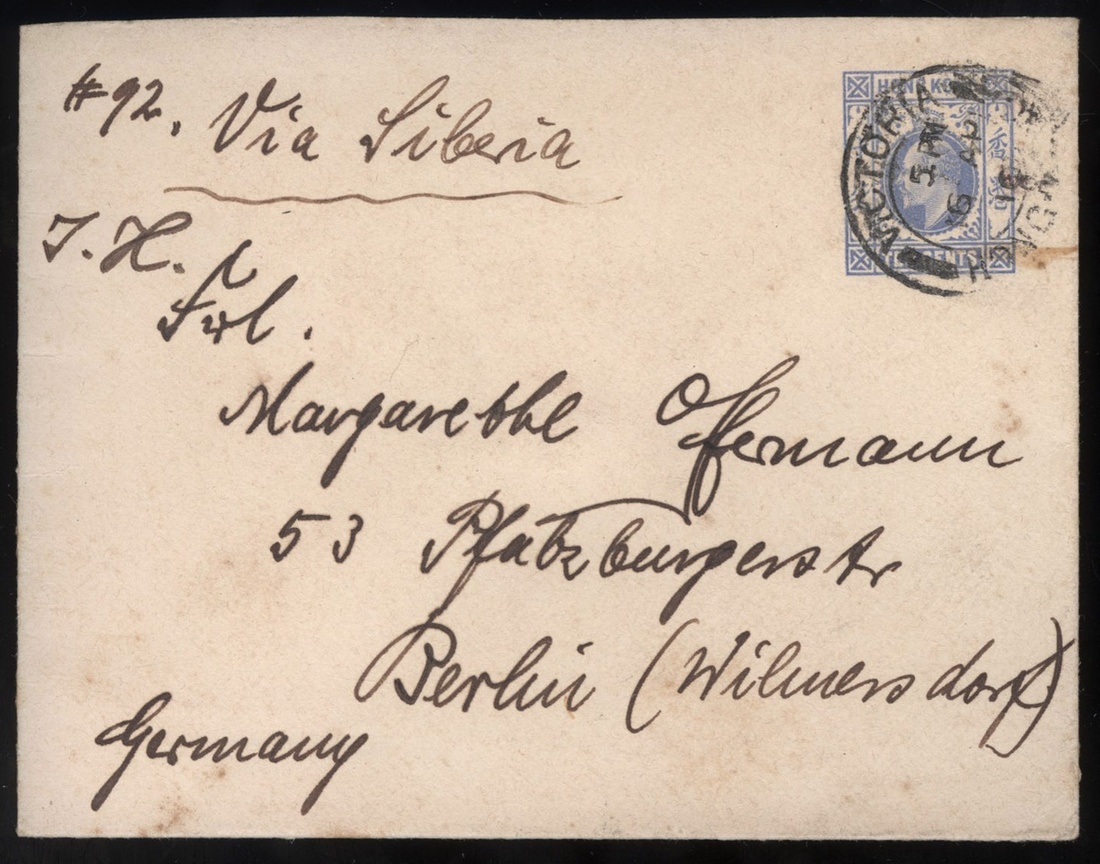 #92. Via Siberia
I. H.
Frl.
Margarethe Offermann
53 Pfalzburgerstr
Berlin (Wilmersdorf)
Germany
HONG KO
TEN CENTS
VICTORIA
5 PM
6 AP
10
HONG
香